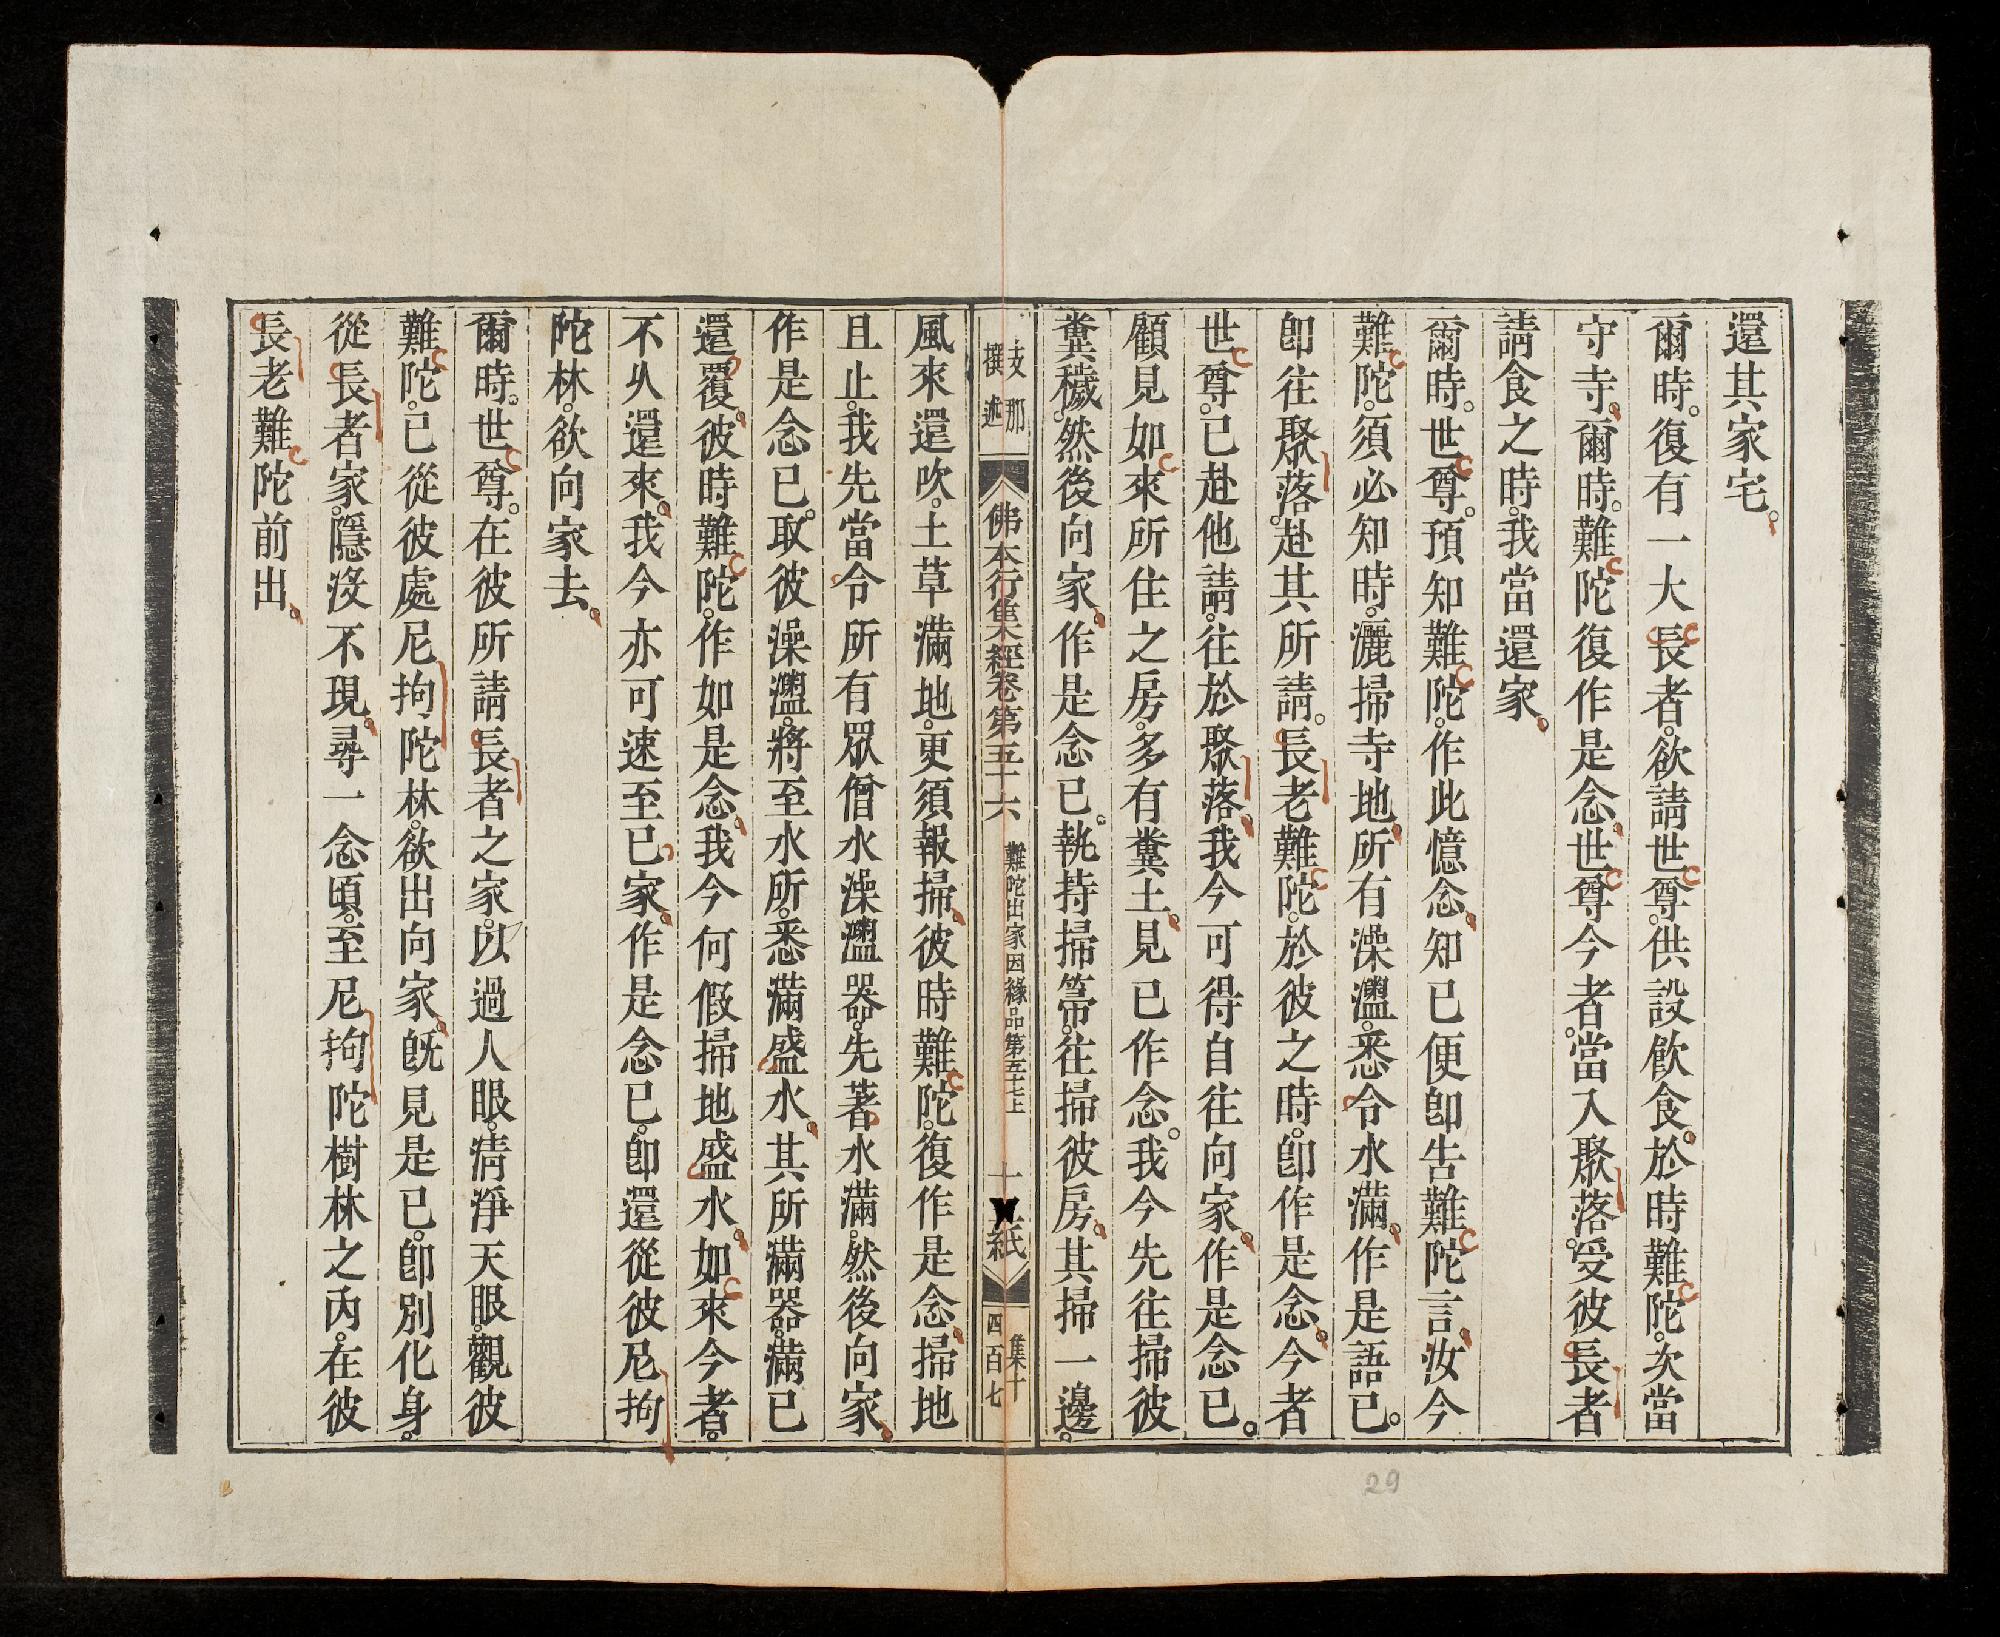 還其家宅。
爾時。復有一大長者。欲請世尊。供設飲食。於時難陀。次當
守寺。爾時。難陀復作是念。世尊今者。當入聚落。受彼長者
請食之時。我當還家。
爾時。世尊。預知難陀。作此憶念。知已便卽告難陀言。汝今
難陀。須必知時。灑掃寺地。所有澡瓫。悉令水滿。作是語已。
卽往聚落。赴其所請。長老難陀。於彼之時。卽作是念。今者
世尊。已赴他請。往於聚落。我今可得自往向家。作是念已。
顧見如來所住之房。多有糞土。見已作念。我今先往掃彼
糞穢。然後向家。作是念已。執持掃箒。往掃彼房。其掃一邊。
支那
撰述
佛本行集經卷第五十六 難陀出家因緣品第五十七上 十 紙 集十
四百七
風來還吹。土草滿地。更須報掃。彼時難陀。復作是念。掃地
且止。我先當令所有眾僧水澡盥器。先著水滿。然後向家。
作是念已。取彼澡盥。將至水所。悉滿盛水。其所滿器。滿已
還覆。彼時難陀。作如是念。我今何假掃地盛水。如來今者。
不久還來。我今亦可速至已家。作是念已。卽還從彼尼拘
陀林。欲向家去。
爾時。世尊。在彼所請長者之家。以過人眼。清淨天眼。觀彼
難陀。已從彼處尼拘陀林。欲出向家。旣見是已。卽別化身。
從長者家。隱沒不現。尋一念頃。至尼拘陀樹林之內。在彼
長老難陀前出。
29